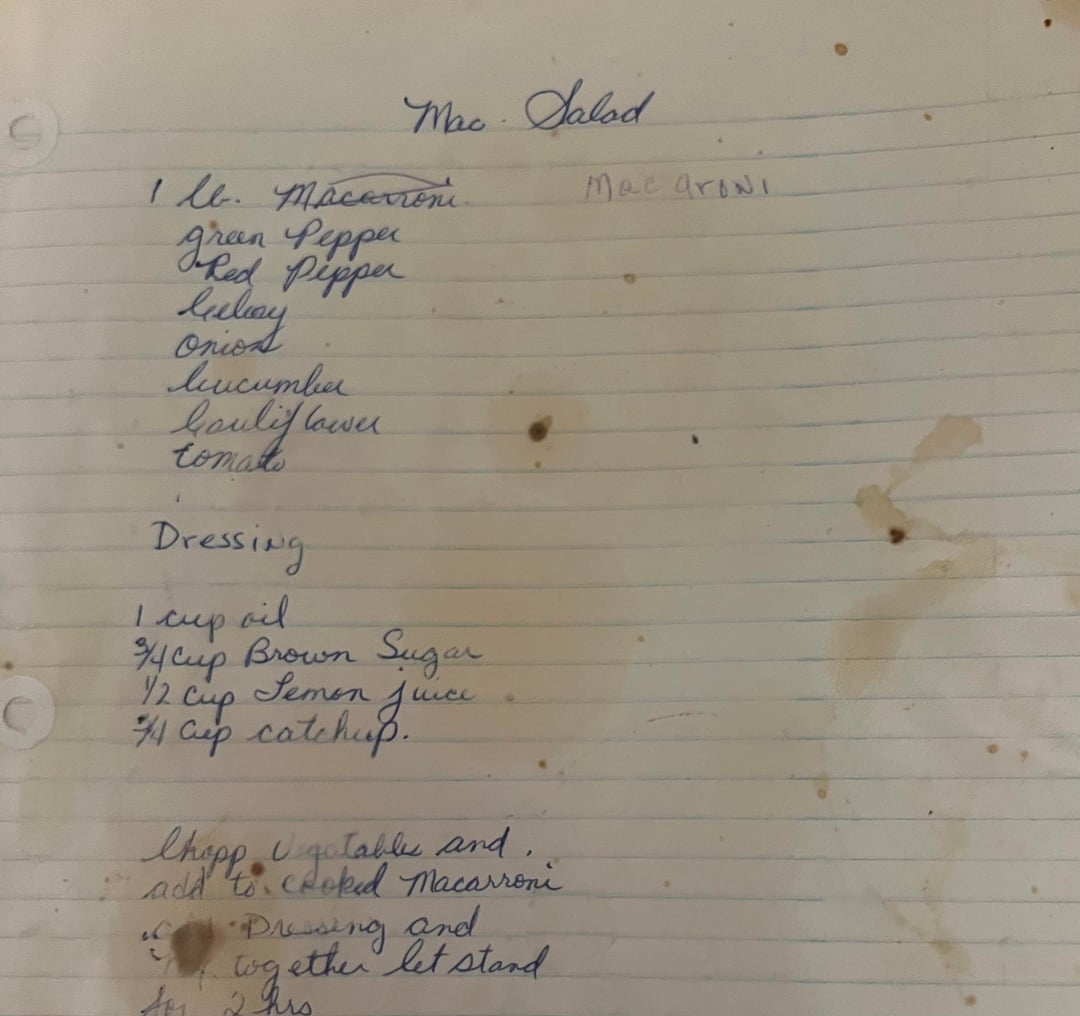 Mac. Salad
1 lb. Macarroni. Macaroni
green Pepper
Red Pepper
Celery
onions
Cucumber
Cauliflower
tomato
Dressing
1 cup oil
3/4 cup Brown Sugar
1/2 cup Lemon juice
3/4 cup catchup.
Chopp Vegatables and.
add to cooked Macarroni
Dressing and
together let stand
for 2 hrs